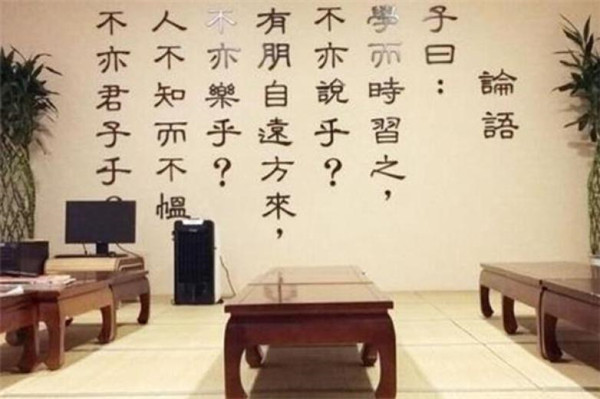 論語
子曰：
學而時習之，
不亦說乎？
有朋自遠方來，
不亦樂乎？
人不知而不慍
不亦君子乎？